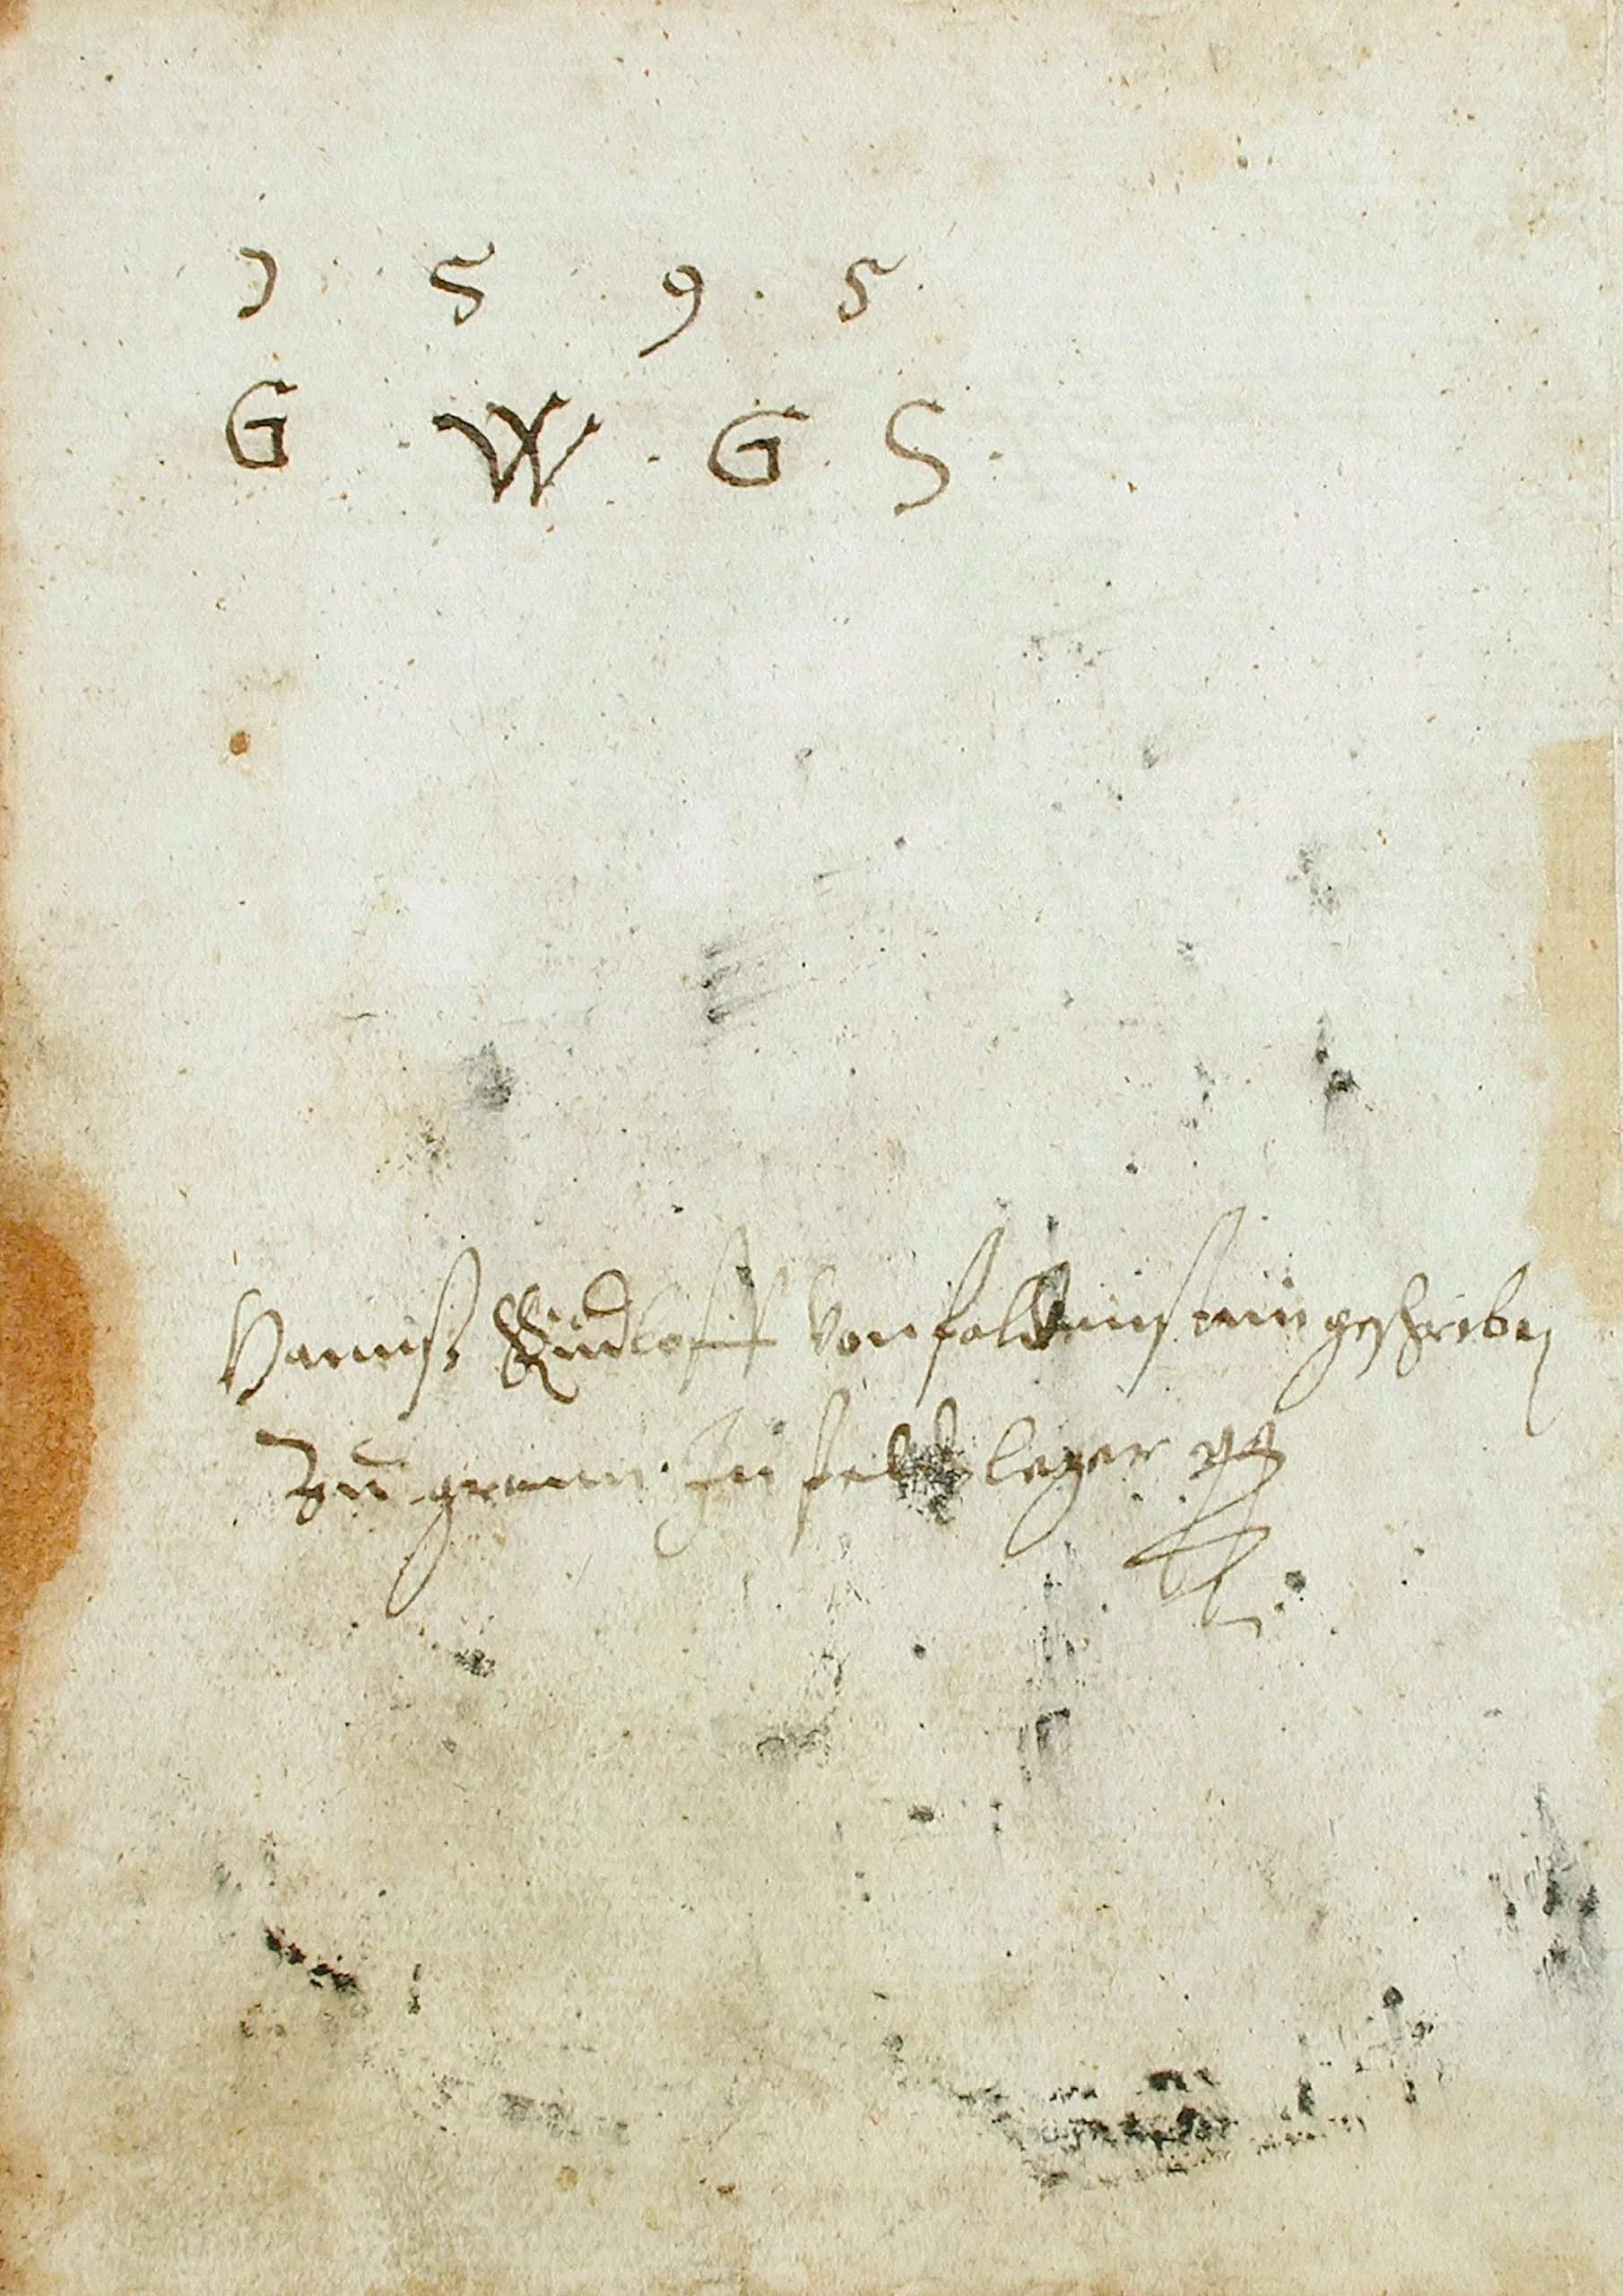 1 5 9 . 5 .
G . W . G . S .
Hannß Rudloff von falkenstein geschrieben
Zu gran Im feldleger